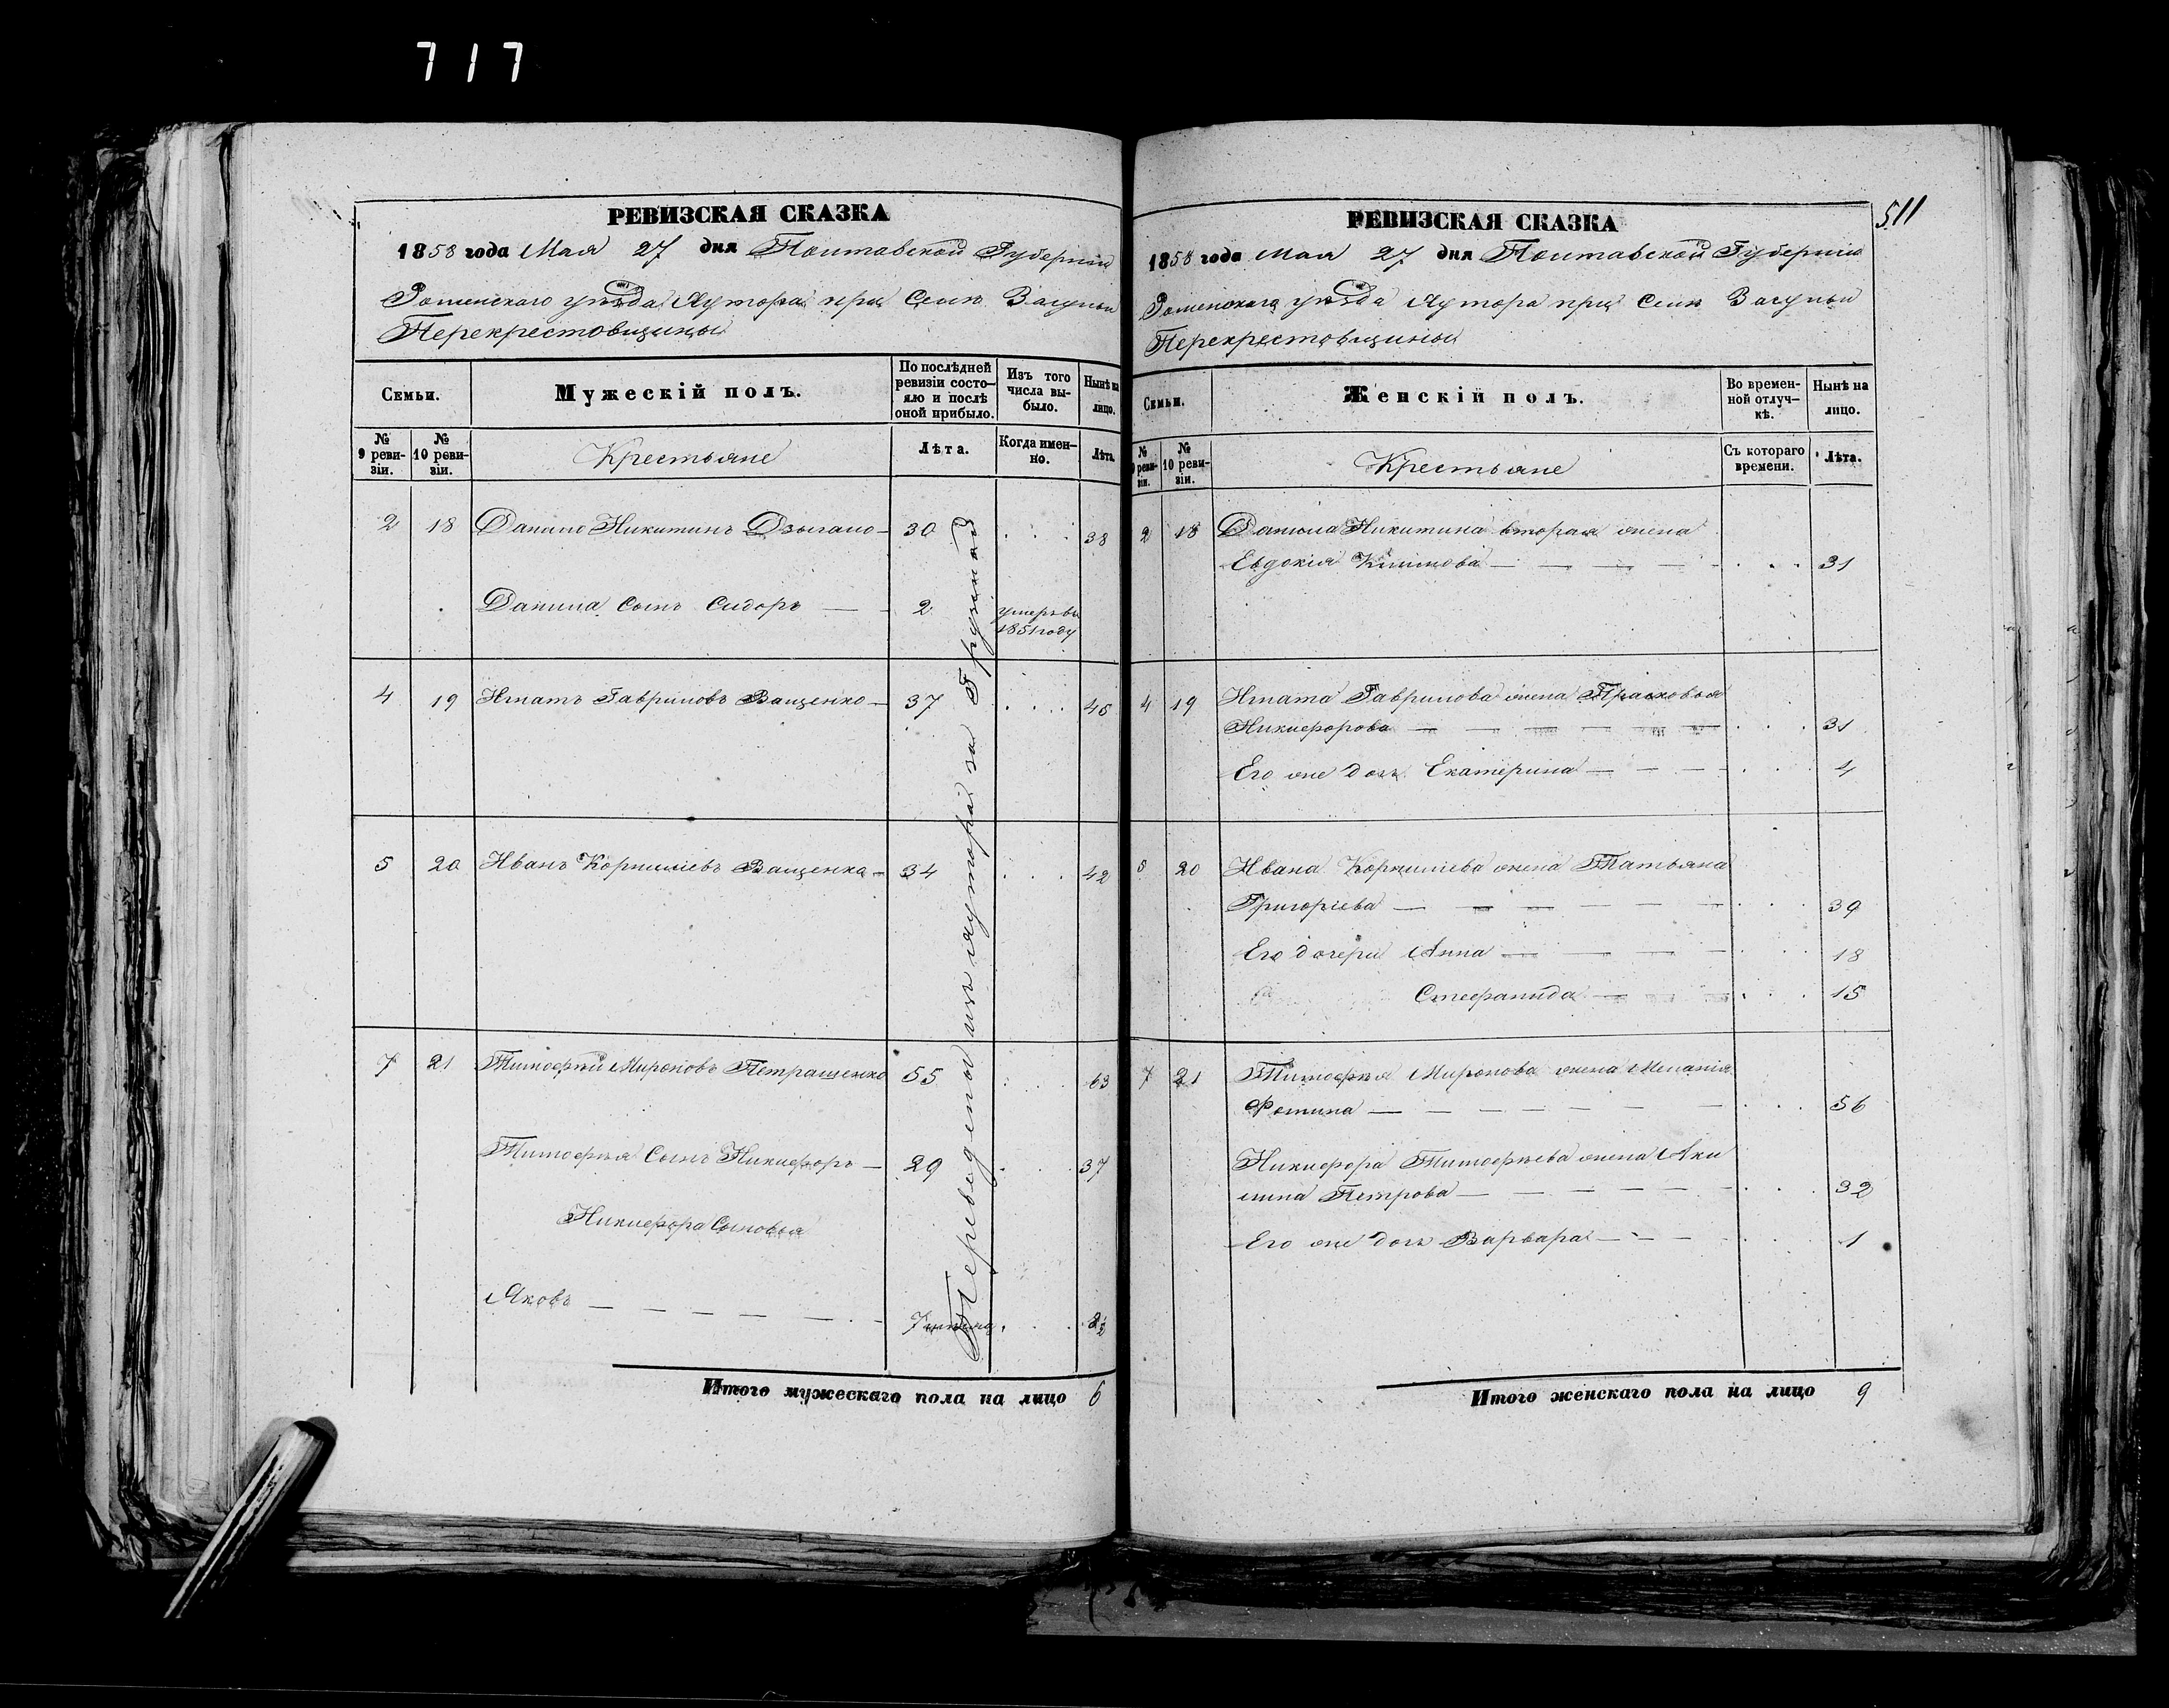 717
РЕВИЗСКАЯ СКАЗКА
1858 года Мая 27 дня Полтавской Губерніи
Роменскаго уѣзда Хутора при Селѣ
Перекрестовщины
Семьи.
Мужескій полъ.
По послѣдней ревизіи состо-
яло и послѣ
оной прибыло.
Изъ того
числа вы-
было.
Нынѣ на
лицо.
№
9 реви-
зіи.
№
10 реви-
зіи.
Крестьяне
Лѣта.
Когда имен-
но.
Лѣта.
2 18 Данило Никитинъ 30 . . . 38
Данила Сынъ Сидоръ — 2 умеръ въ
1851 году
4 19 Игнатъ Гавриловъ Ващенко — 37 . . . . 45
5 20 Иванъ Корнилiевъ Ващенко — 34 . . . 42
7 21 Тимофѣй Мироновъ Петращенко 55 . . . 63
Тимофѣя Сынъ Никифоръ — 29 . . . 37
Никифора Сыновья
Яковъ — — — — — — . . .
Переведены изъ хутора
Итого мужескаго пола на лицо 6
511
РЕВИЗСКАЯ СКАЗКА
1858 года Мая 27 дня Полтавской Губерніи
Роменскаго уѣзда Хутора при Селѣ
Перекрестовщины
Семьи.
Женскій полъ.
Во времен-
ной отлуч-
кѣ.
Нынѣ на
лицо.
№
9 реви-
зіи.
№
10 реви-
зіи.
Крестьяне
Съ котораго
времени.
Лѣта.
2 18 Данила Никитина вторая жена
Евдокія Климова — — — — . . . 31
4 19 Игната Гаврилова жена Прасковья
Никифорова — — — — — — . . . 31
Его же дочь Екатерина — — — . . . 4
5 20 Ивана Корнилiева жена Татьяна
Григоріева — — — — — — . . . 39
Его дочери Анна — — — — . . . 18
Стефанида — — — . . . 15
7 21 Тимофѣя Миронова жена Меланія
Фотина — — — — — — — . . . 56
Никифора Тимофѣева жена Аку
лина Петрова — — — — — — . . . 32
Его же дочь Варвара — — — . . . 1
Итого женскаго пола на лицо 9